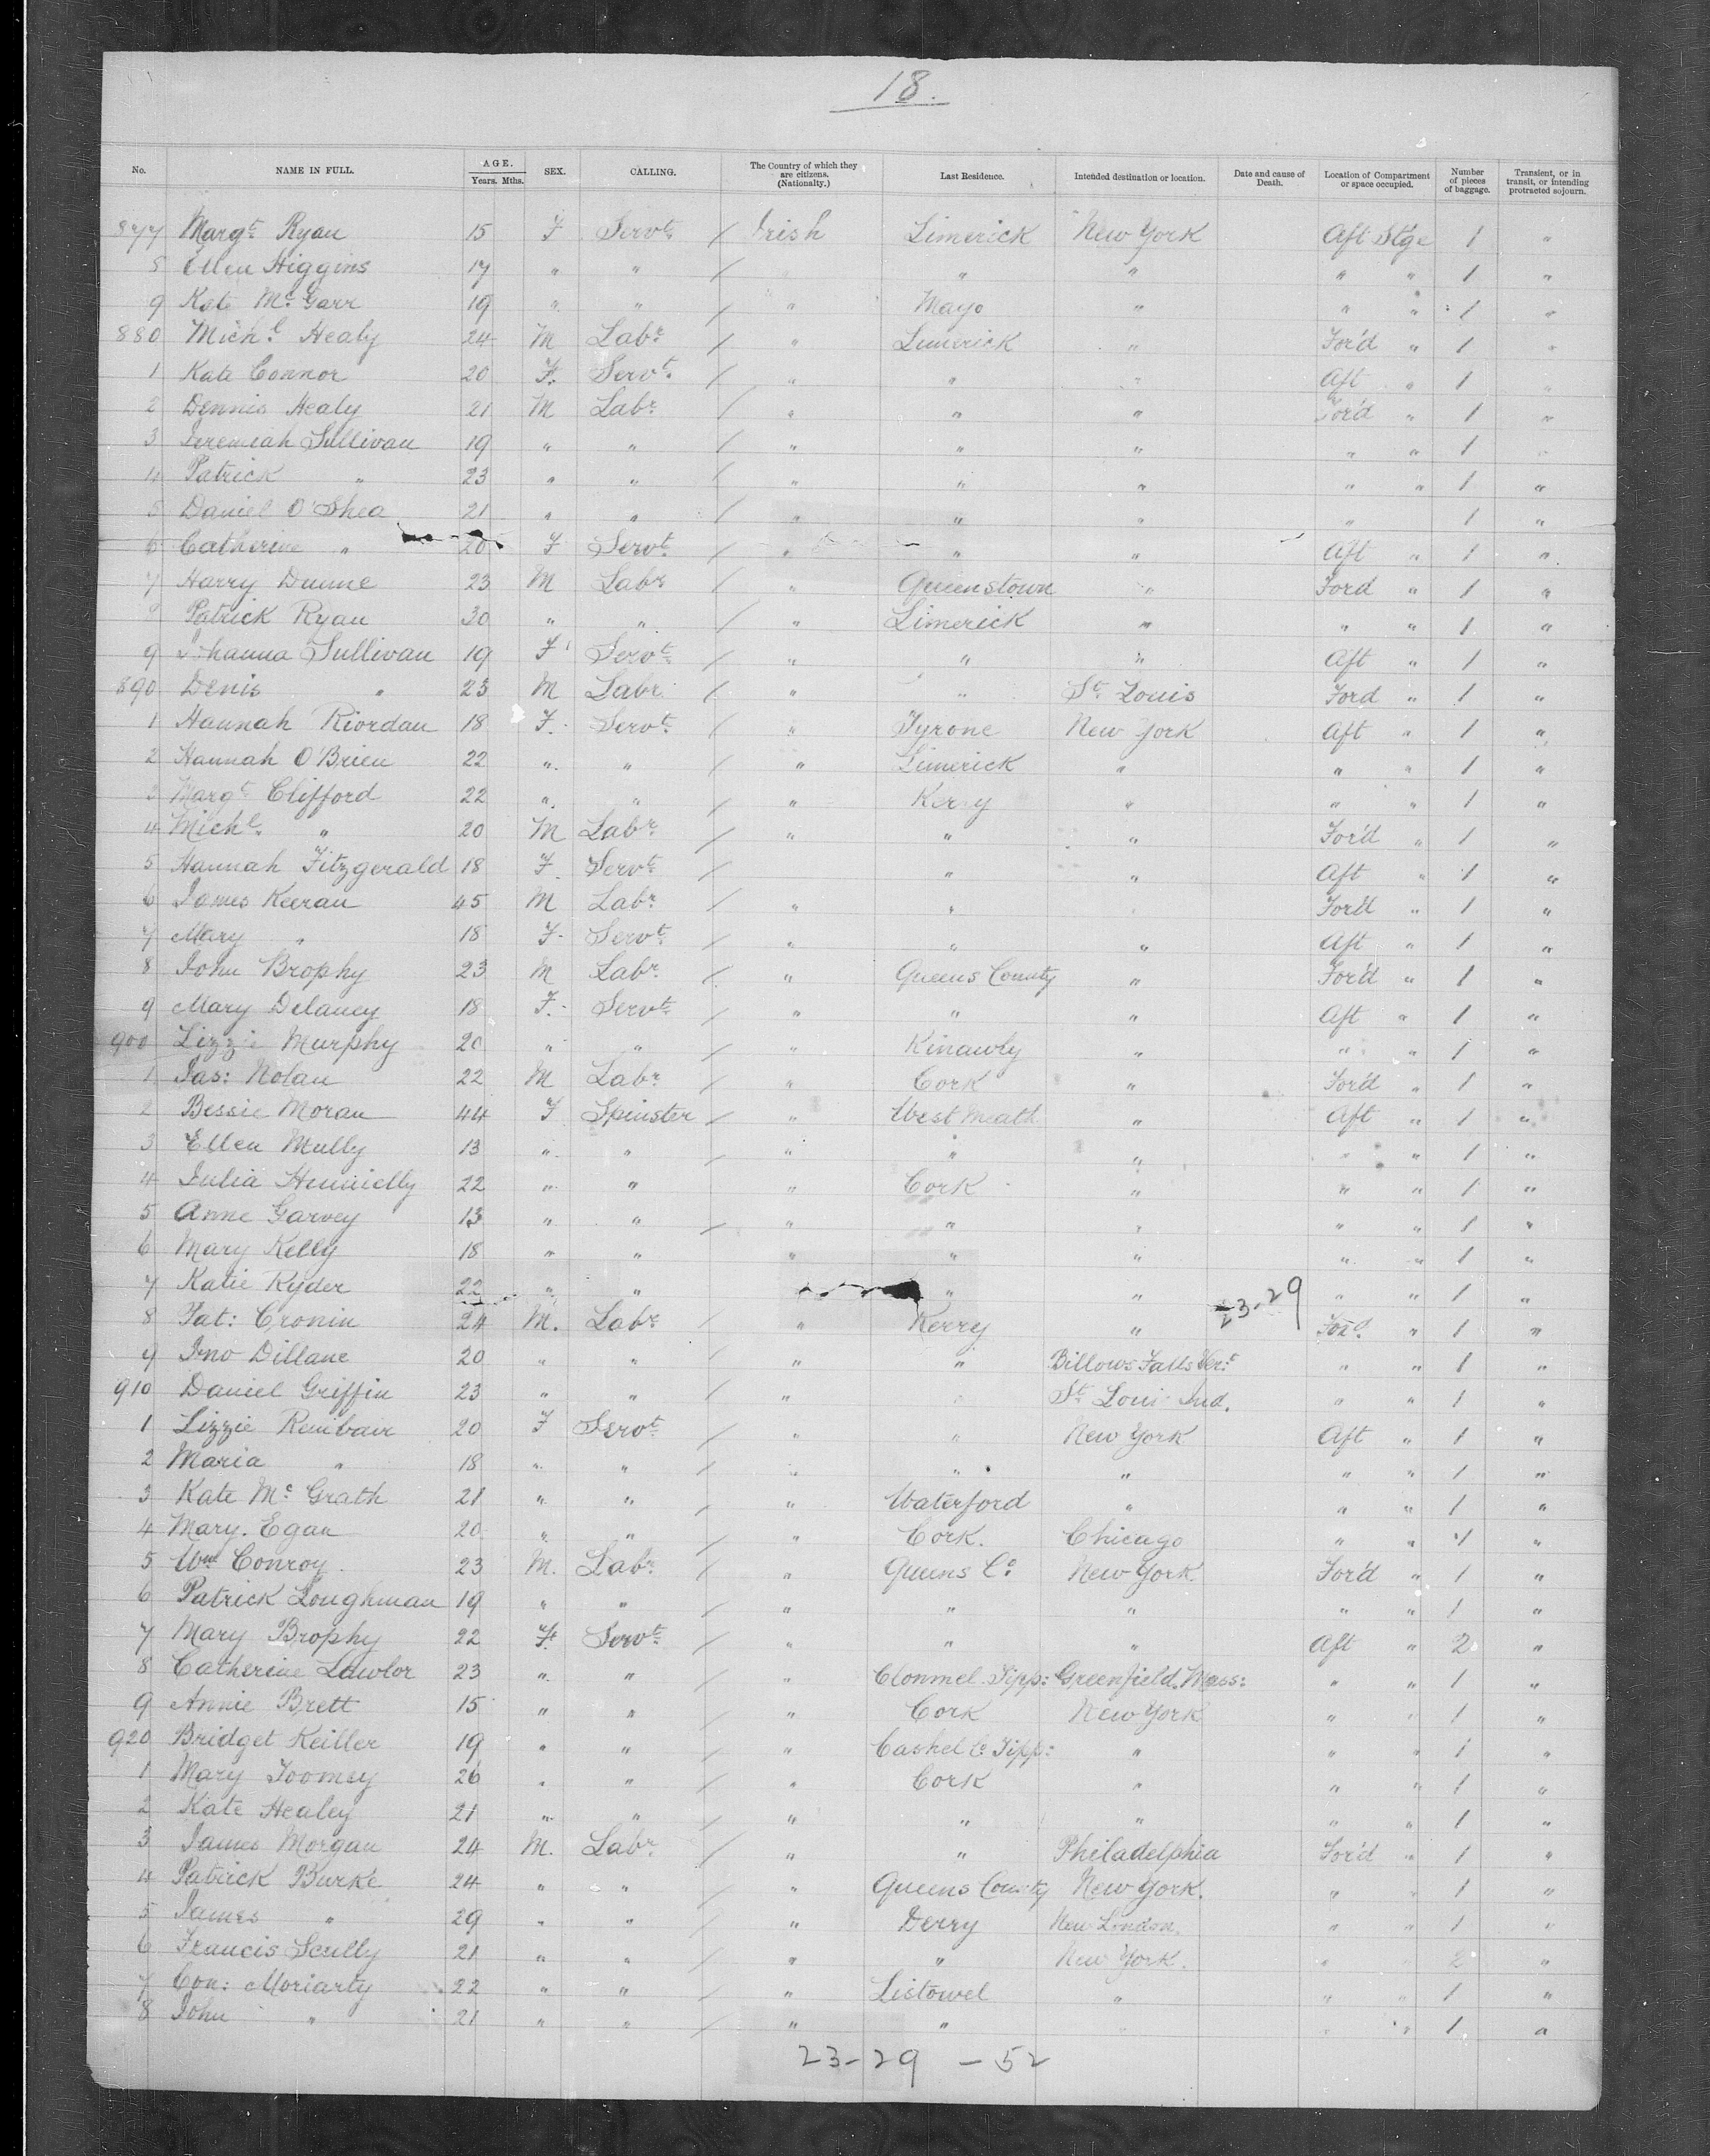 18.
No. NAME IN FULL. AGE. Years. Mths. SEX. CALLING. The Country of which they are citizens. (Nationality.) Last Residence. Intended destination or location. Date and cause of Death. Location of Compartment or space occupied. Number of pieces of baggage. Transient, or in transit, or intending protracted sojourn.
877 Margt Ryan 15 F Servt / Irish Limerick New York Aft Stge 1 "
8 Ellen Higgins 17 " " / " " " " " 1 "
9 Kate Mc Garr 19 " " / " Mayo " " " 1 "
880 Michl Healy 24 M Labr / " Limerick " For'd " 1 "
1 Kate Connor 20 F. Servt / " " " Aft " 1 "
2 Dennis Healy 21 M Labr / " " " For'd " 1 "
3 Jeremiah Sullivan 19 " " / " " " " " 1 "
4 Patrick " 23 " " / " " " " " 1 "
5 Daniel O'Shea 21 " " / " " " " 1 "
6 Catherine " 20 F Servt / " " " Aft " 1 "
7 Harry Dunne 23 M Labr / " Queenstown " Ford " 1 "
8 Patrick Ryan 30 " " / " Limerick " " " 1 "
9 Johanna Sullivan 19 F Servt / " " " Aft " 1 "
890 Denis " 23 M Labr / " " St Louis Ford " 1 "
1 Hannah Riordan 18 F. Servt / " Tyrone New York Aft " 1 "
2 Hannah O'Brien 22 " " / " Limerick " " " 1 "
3 Margt Clifford 22 " " / " Kerry " " " 1 "
4 Michl " 20 M Labr / " " " For'd " 1 "
5 Hannah Fitzgerald 18 F. Servt / " " Aft " 1 "
6 James Keeran 45 M Labr / " " For'd " 1 "
7 Mary " 18 F. Servt / " " " Aft " 1 "
8 John Brophy 23 M Labr / " Queens County " For'd " 1 "
9 Mary Delaney 18 F. Servt / " " " Aft " 1 "
900 Lizzie Murphy 20 " " / " Kinawly " " " 1 "
1 Jas: Nolan 22 M Labr / " Cork " For'd " 1 "
2 Bessie Moran 44 F Spinster / " West Meath " Aft " 1 "
3 Ellen Mully 13 " " / " " " " " 1 "
4 Julia 22 " " " Cork " " " 1 "
5 Anne Garvey 13 " " / " " " " " 1 "
6 Mary Kelly 18 " " " " " " " 1 "
7 Katie Ryder 22 " " " " " " 1 "
23-29
8 Pat: Cronin 24 M. Labr / " Kerry " Ford. " 1 "
9 Jno Dillane 20 " " / " " Billows Falls Ver:t " " 1 "
910 Daniel Griffin 23 " " / " " St Louis Ind. " " 1 "
1 Lizzie 20 F Servt / " " New York Aft " 1 "
2 Maria " 18 " " / " " " " " 1 "
3 Kate Mc Grath 21 " " / " Waterford " " " 1 "
4 Mary. Egan 20 " " / " Cork. Chicago " " "
5 Wm Conroy 23 M. Labr / " Queens Co New York. For'd " 1 "
6 Patrick Loughman 19 " " / " " " " " 1 "
7 Mary Brophy 22 F. Servt / " " " Aft " 2 "
8 Catherine Lawlor 23 " " " Clonmel. Tipp: Greenfield. Mass: " " 1 "
9 Annie Brett 15 " " / " Cork New York " " 1 "
920 Bridget Keiller 19 " " / " Cashel Co Tipp: " " " 1 "
1 Mary Toomey 26 " " / " Cork " " " 1 "
2 Kate Healey 21 " " / " " " " " 1 "
3 James Morgan 24 M. Labr / " " Philadelphia For'd " 1 "
4 Patrick Burke 24 " " / " Queens County New York. " " 1 "
5 James " 29 " " / " Derry New London. " " 1 "
6 Francis Scully 21 " " / " " New York. " 2 "
7 Con: Moriarty 22 " " / " Listowel " " " 1 "
8 John " 21 " " / " " " " 1 "
23-29 - 52